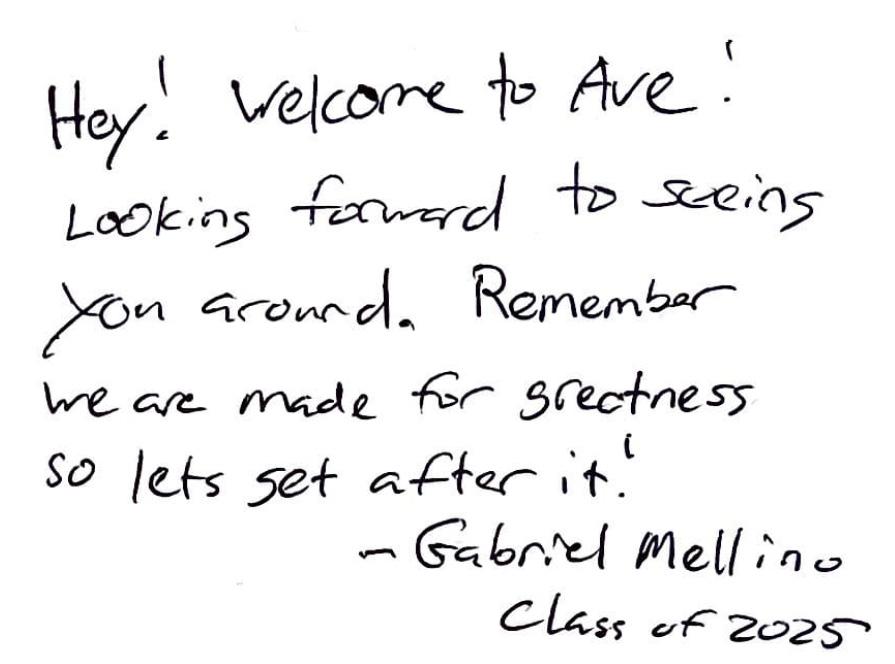 Hey! Welcome to Ave!
Looking forward to seeing
you around. Remember
we are made for greatness
so lets get after it!
- Gabriel Mellino
Class of 2025